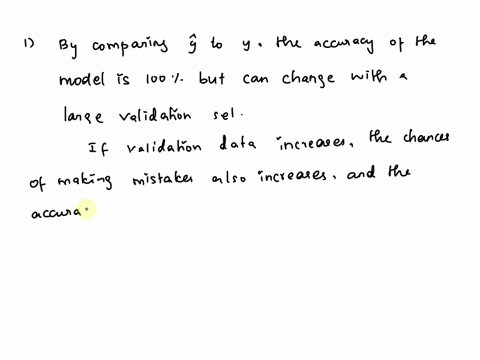 1) By comparing ŷ to y, the accuracy of the
model is 100% but can change with a
large validation sel.
If validation data increases, the chances
of making mistakes also increases, and the
accura